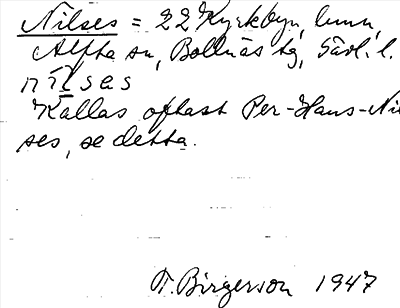 Nilses = 22 Kyrkbyn, hmn,
Alfta sn, Bollnäs tg, Gävl. l.
nilses
Kallas oftast Per-Hans-Nil
ses, se detta.
T. Birgerson 1947